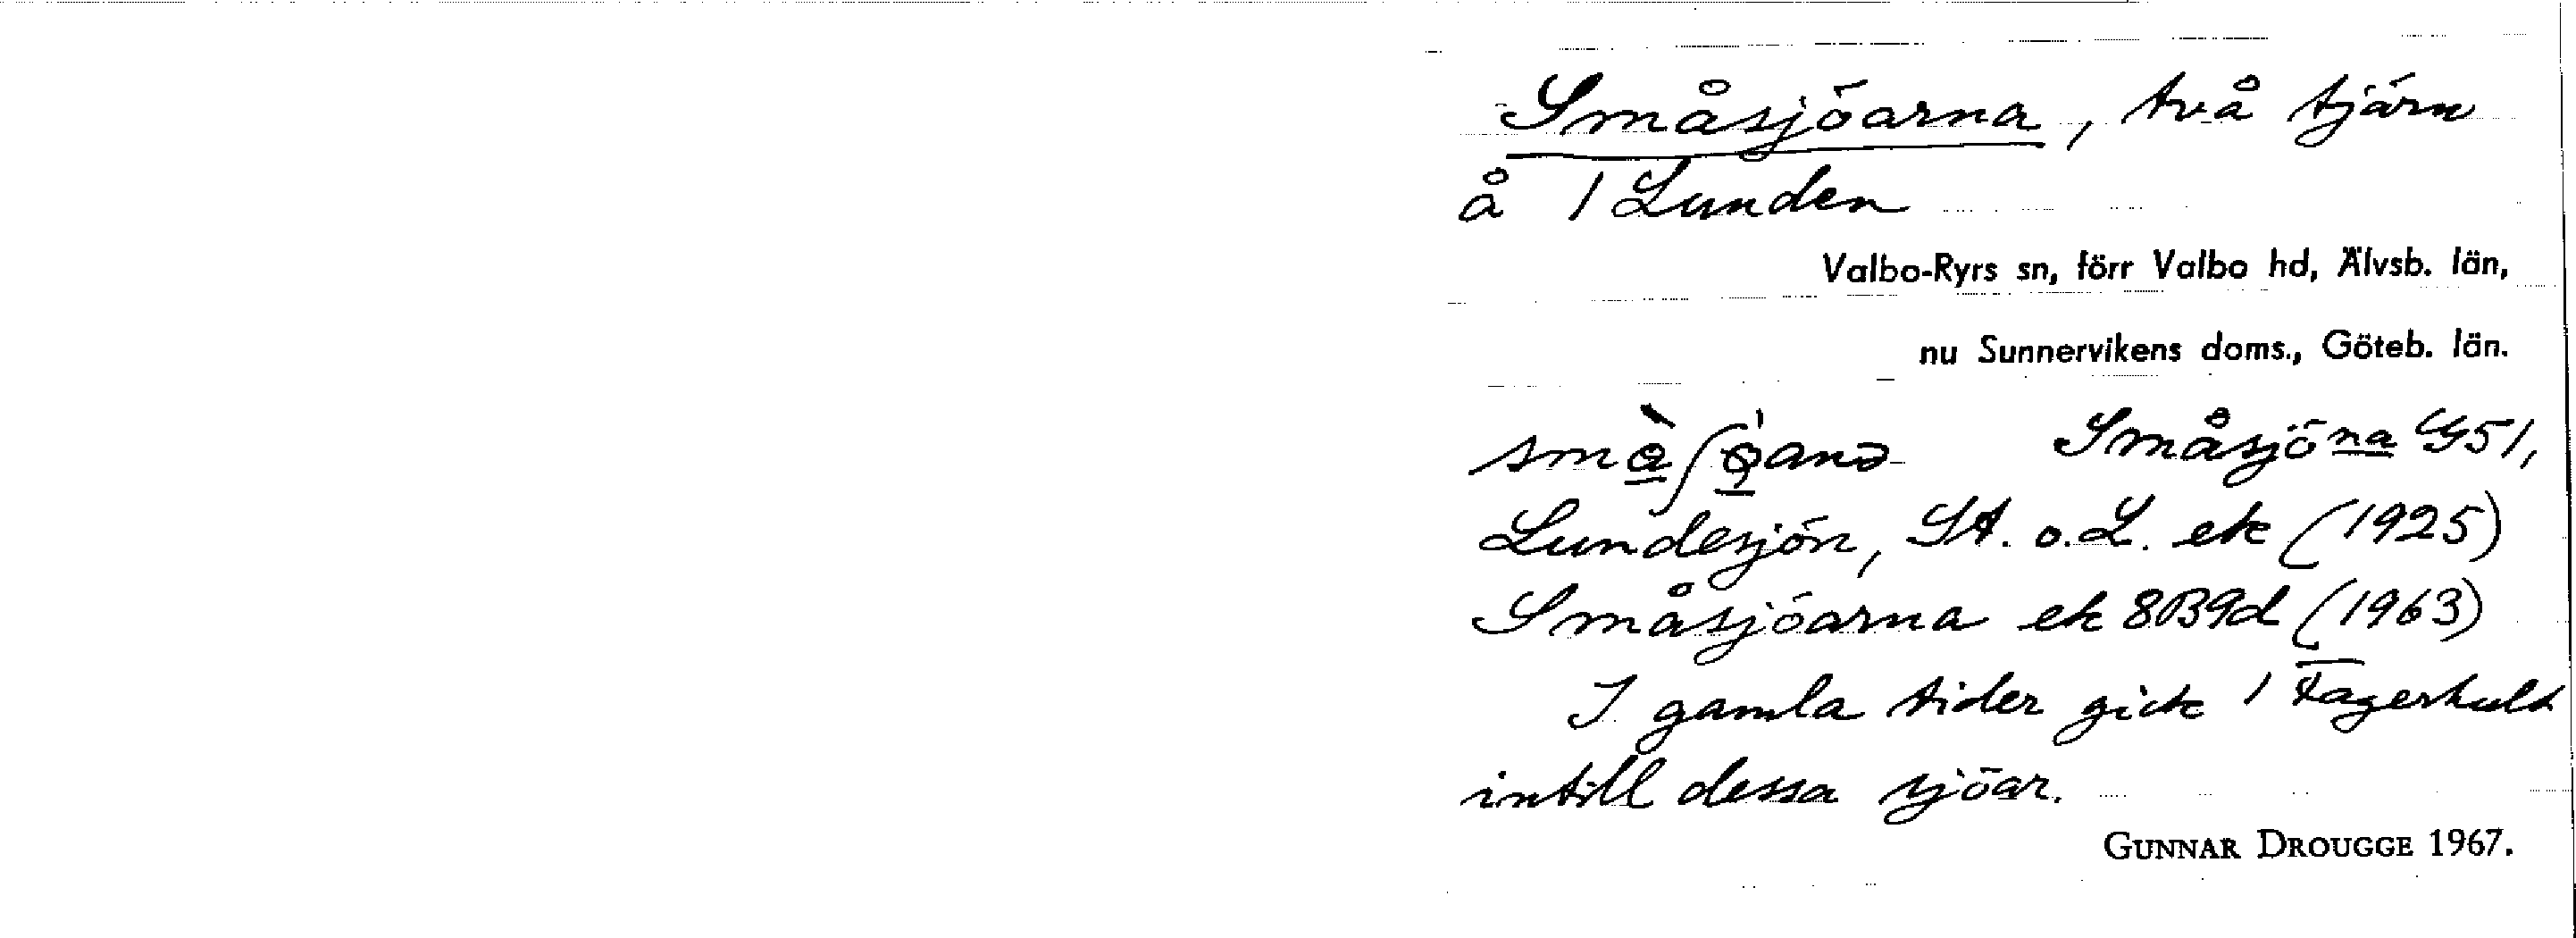 Småsjöarna, två tjärn
å / Lunden
Valbo-Ryrs sn, förr Valbo hd, Älvsb. län,
nu Sunnervikens doms., Göteb. län.
Småsjöna G51,
Lundesjön, St. o. L. ek (1925)
Småsjöarna ek 8B9d (1963)
I gamla tider gick / Fagerhult
intill dessa sjöar.
GUNNAR DROUGGE 1967.